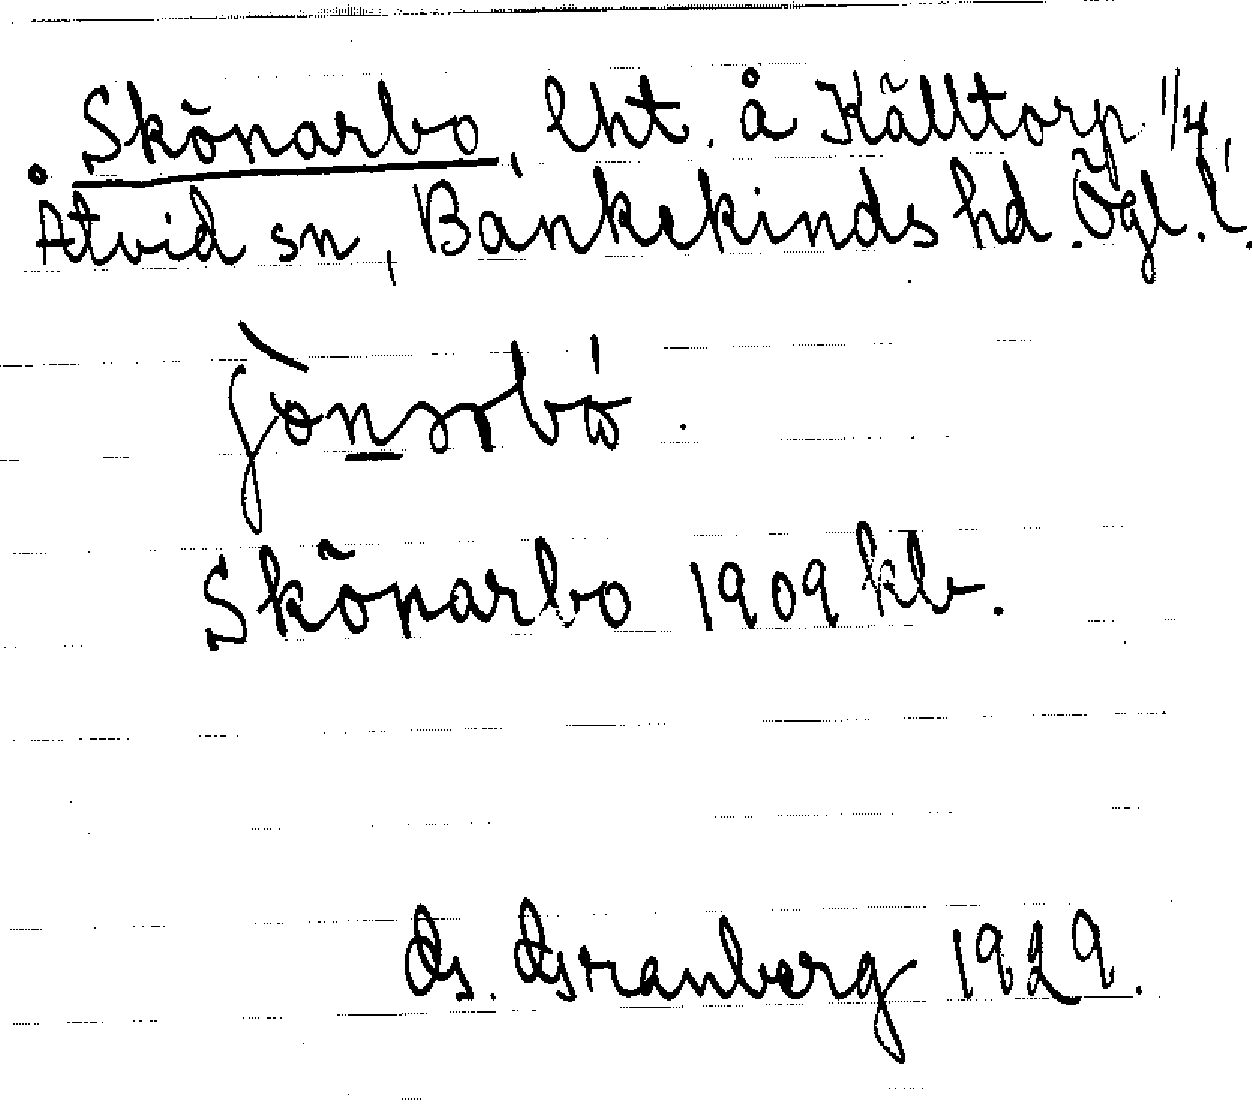 Skönarbo, lht. å Källtorp 1/4,
Åtvid sn, Bankekinds hd. Ögl. l.
Skönarbo 1909 kb.
G. Granberg 1929.